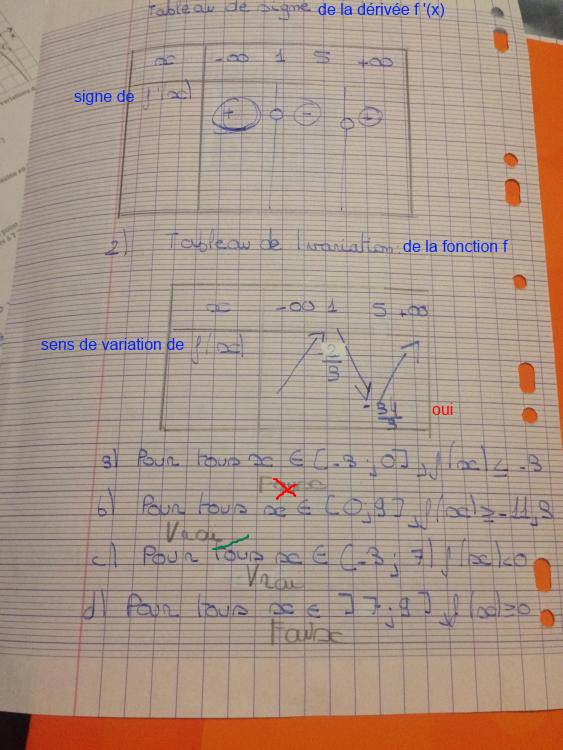 Tableau de signe de la dérivée f '(x)
x -∞ 1 5 +∞
signe de f'(x) + 0 - 0 +
2) Tableau de variation. de la fonction f
x -∞ 1 5 +∞
sens de variation de f(x)
-2/3
-34/3 oui
a) Pour tous x ∈ [-3 ; 0], f(x) ≤ -3
Faux
b) Pour tous x ∈ [0 ; 9], f(x) ≥ -11,3
Vrai
c) Pour tous x ∈ [-3 ; 7] f(x) < 0
Vrai
d) Pour tous x ∈ ]7 ; 9], f(x) ≥ 0
Faux